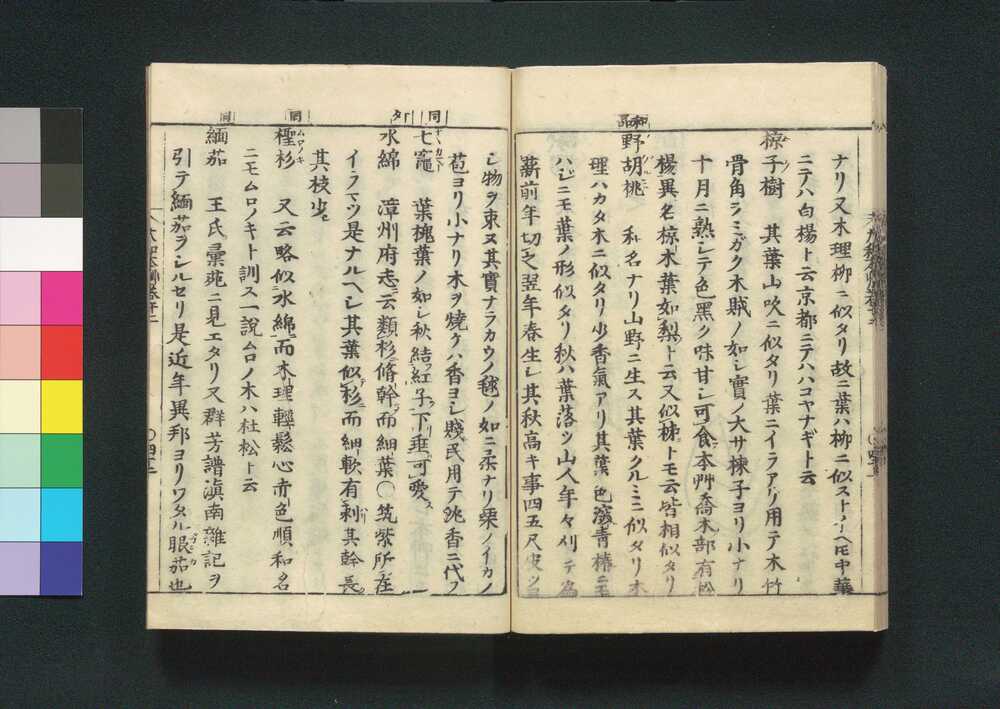 ナリ又木理柳ニ似タリ故ニ葉ハ柳ニ似ストイヘ𪜈中華
ニテハ白楊ト云京都ニテハハコヤナギト云
椋子樹 其葉山吹ニ似タリ葉ニイラアリ用テ木竹
骨角ヲミガク木賊ノ如シ實ノ大サ楝子ヨリ小ナリ
十月ニ熟シテ色黒ク味甘シ可食本艸喬木部有松
楊異名椋木葉如梨ト云又似柹トモ云皆相似タリ
和品
野胡桃 和名ナリ山野ニ生ス其葉クルミニ似タリ木
理ハカタ木ニ似タリ少香氣アリ其葉色深青椿ニモ
ハジニモ葉ノ形似タリ秋ハ葉落ツ山人年々刈テ為
薪前年切之翌年春生シ其秋高キ事四五尺皮ツヨ
シ物ヲ束ヌ其實ナラカウノ毬ノ如ニ柔ナリ栗ノイカノ
苞ヨリ小ナリ木ヲ燒ケハ香ヨシ賤民用テ銚香ニ代フ
同
七竈 葉槐葉ノ如シ秋結紅子下垂可愛
外
水綿 漳州府志云類杉脩幹而細葉〇筑紫所在
イフマツ是ナルヘシ其葉似杉而細軟有刺其幹長
其枝少
同
檉杉 又云略似水綿而木理輕鬆心赤色順和名
ムロノキ
ニモムロノキト訓ス一説ムロノ木ハ杜松ト云
同
緬茄 王氏彙苑ニ見エタリ又群芳譜滇南雜記ヲ
引テ緬茄ヲシルセリ是近年異邦ヨリワタル眼茄也